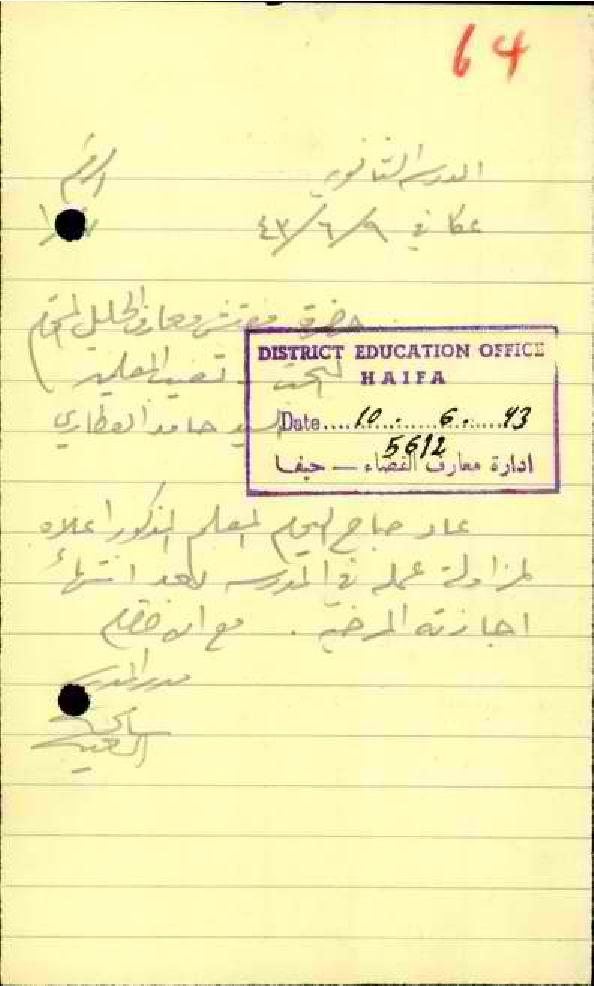 64
المدرسة الثانوية
الرقم
عكا في ٤٣/٦/٩
حضرة مفتش معارف الجليل المحترم
DISTRICT EDUCATION OFFICE
HAIFA
البحث - تغيب المعلمين
Date....10......6......43
السيد حامد العطاري
5612
ادارة معارف القضاء — حيفا
عاد صباح اليوم المعلم المذكور اعلاه
لمزاولة عمله في المدرسة بعد انتهاء
اجازته المرضية . مع الاحترام
مدير المدرسة